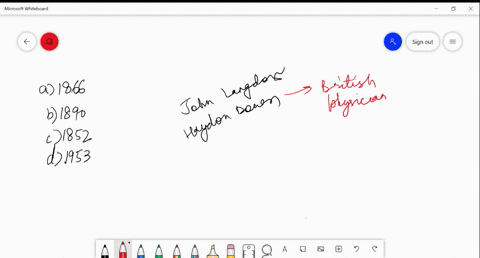 Microsoft Whiteboard
Sign out
a) 1866
b) 1890
c) 1852
d) 1953
John Langdon
Haydon Down
British
physician